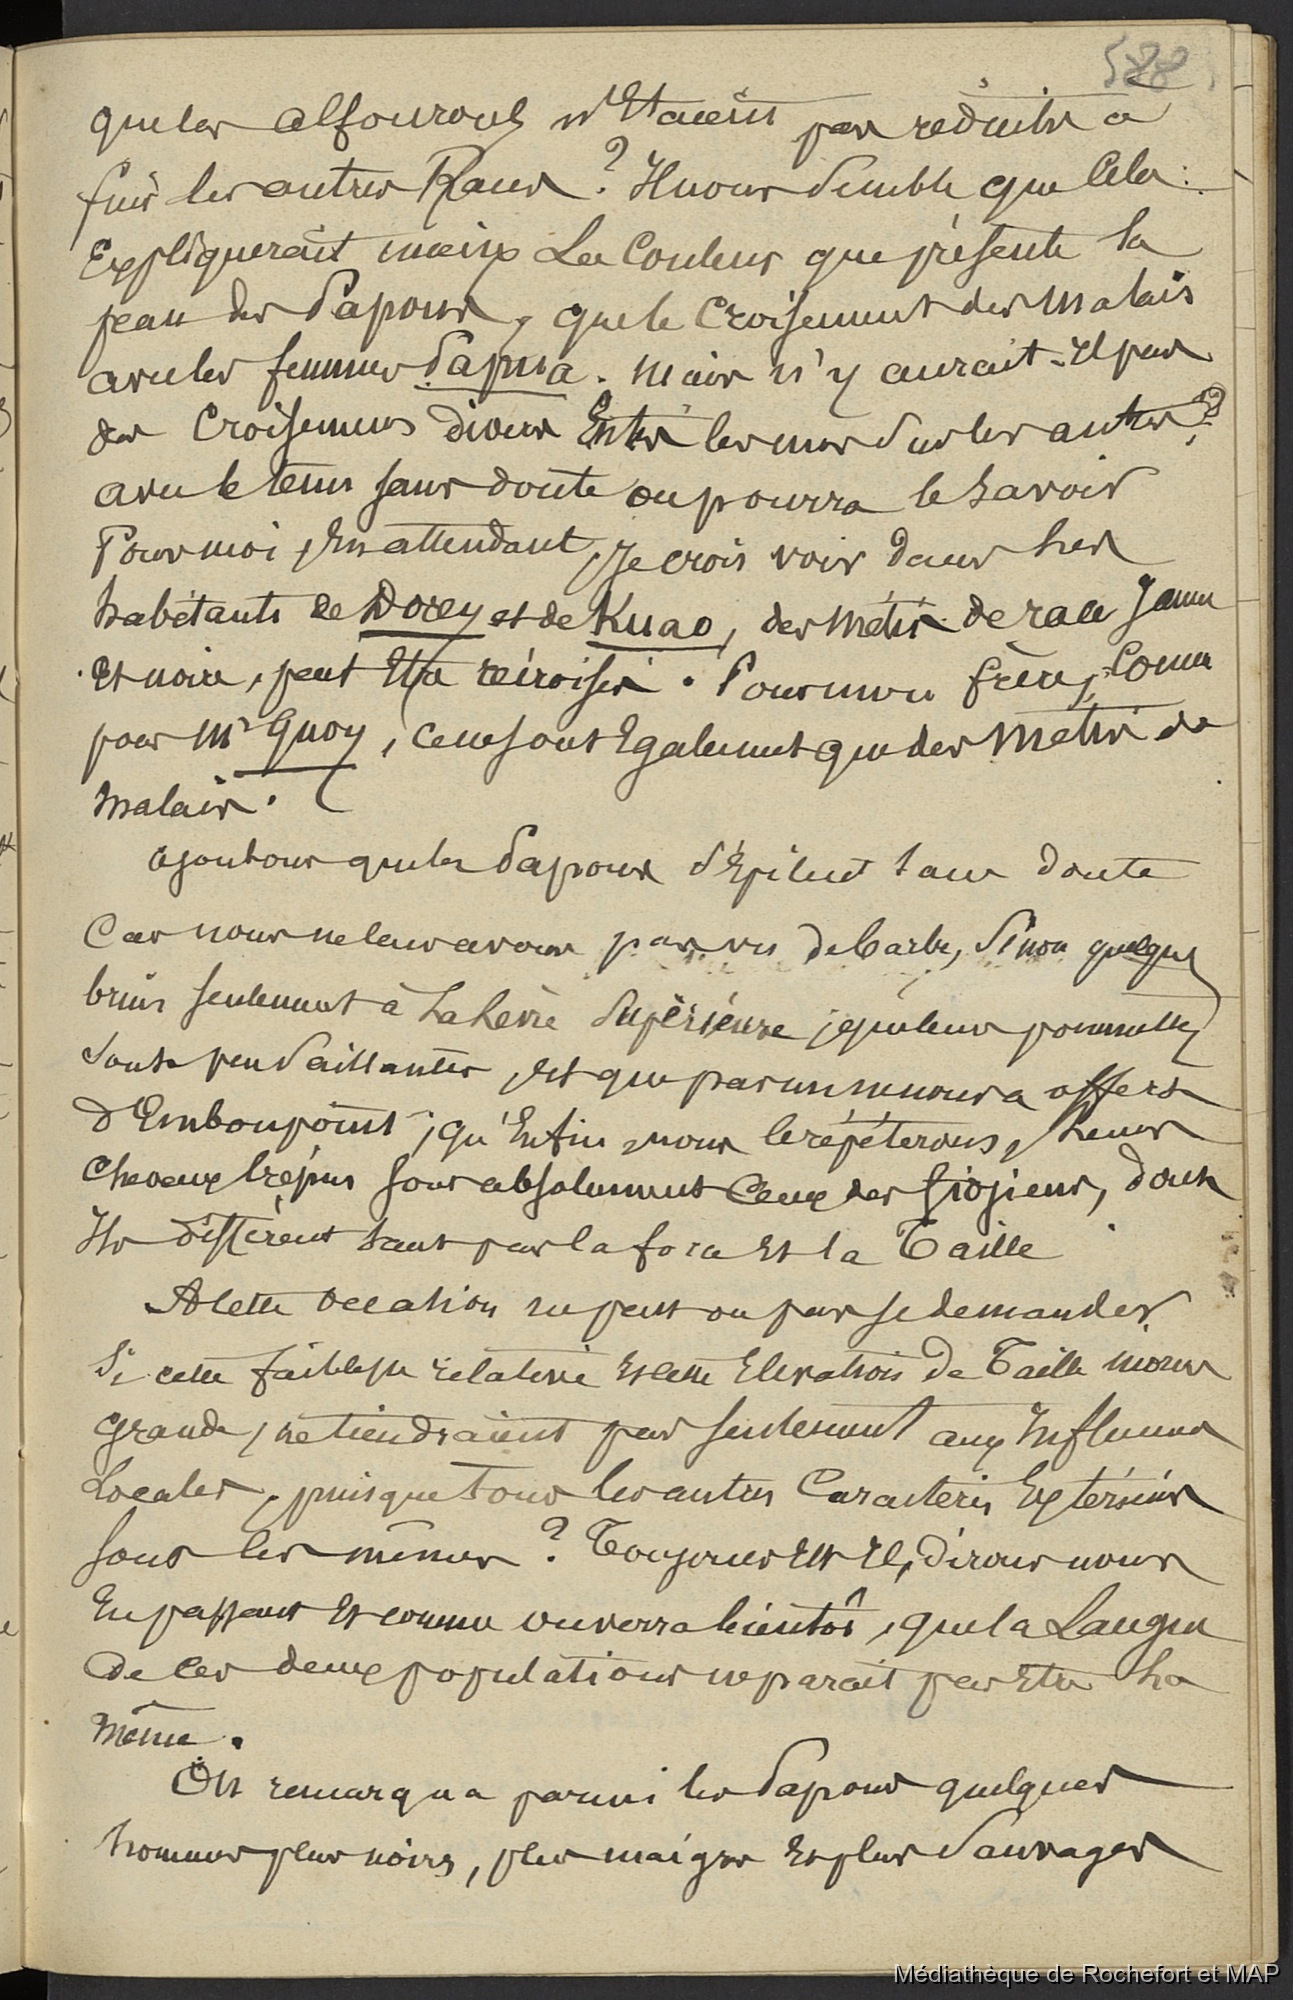 588
que les alfourous n'Etaient pas réduits à
fuir les autres Races ? Il nous semble que Cela
Expliquerait mieux La Couleur que présente la
peau des Papous, que le Croisement des Malais
avec les femmes Papua. Mais n'y aurait-il pas
des Croisemens divers Entre les uns sur les autres ?
avec le tems sans doute on pourra le savoir
Pour moi, En attendant, je crois voir dans les
habitants de Dorey et de Kuao, des métis de race Jaune
Et noire, peut Etre recroisés. Pour mon frère, Comme
pour Mr Quoy, ce ne sont Egalement que des Métis de
Malais.
ajoutons que les Papous s'Epilent sans doute
Car nous ne leur avons pas vu de barbe, Sinon quelques
brins seulement à La Lèvre Supérieure, que leurs pommettes
sont peu Saillantes, Et que pas un ne nous a offert
d'Embonpoint ; qu'Enfin, nous le répéterons, Leurs
Cheveux crépus sont absolument Ceux des fidjiens, dont
Ils diffèrent tant par la force Et la Taille
A cette occasion ne peut on pas se demander
Si cette faiblesse relative Et cette Elevation de Taille moins
grande, ne tiendraient pas seulement aux Influences
Locales, puisque tous les autres Caractères Extérieurs
sont les mêmes ? Toujours Est Il, dirons nous
En passant Et comme on verra bientôt, que la Langue
de ces deux populations ne parait pas Etre La
Même.
On remarqua parmi les Papous quelques
hommes plus noirs, plus maigres Et plus Sauvages
Médiathèque de Rochefort et MAP